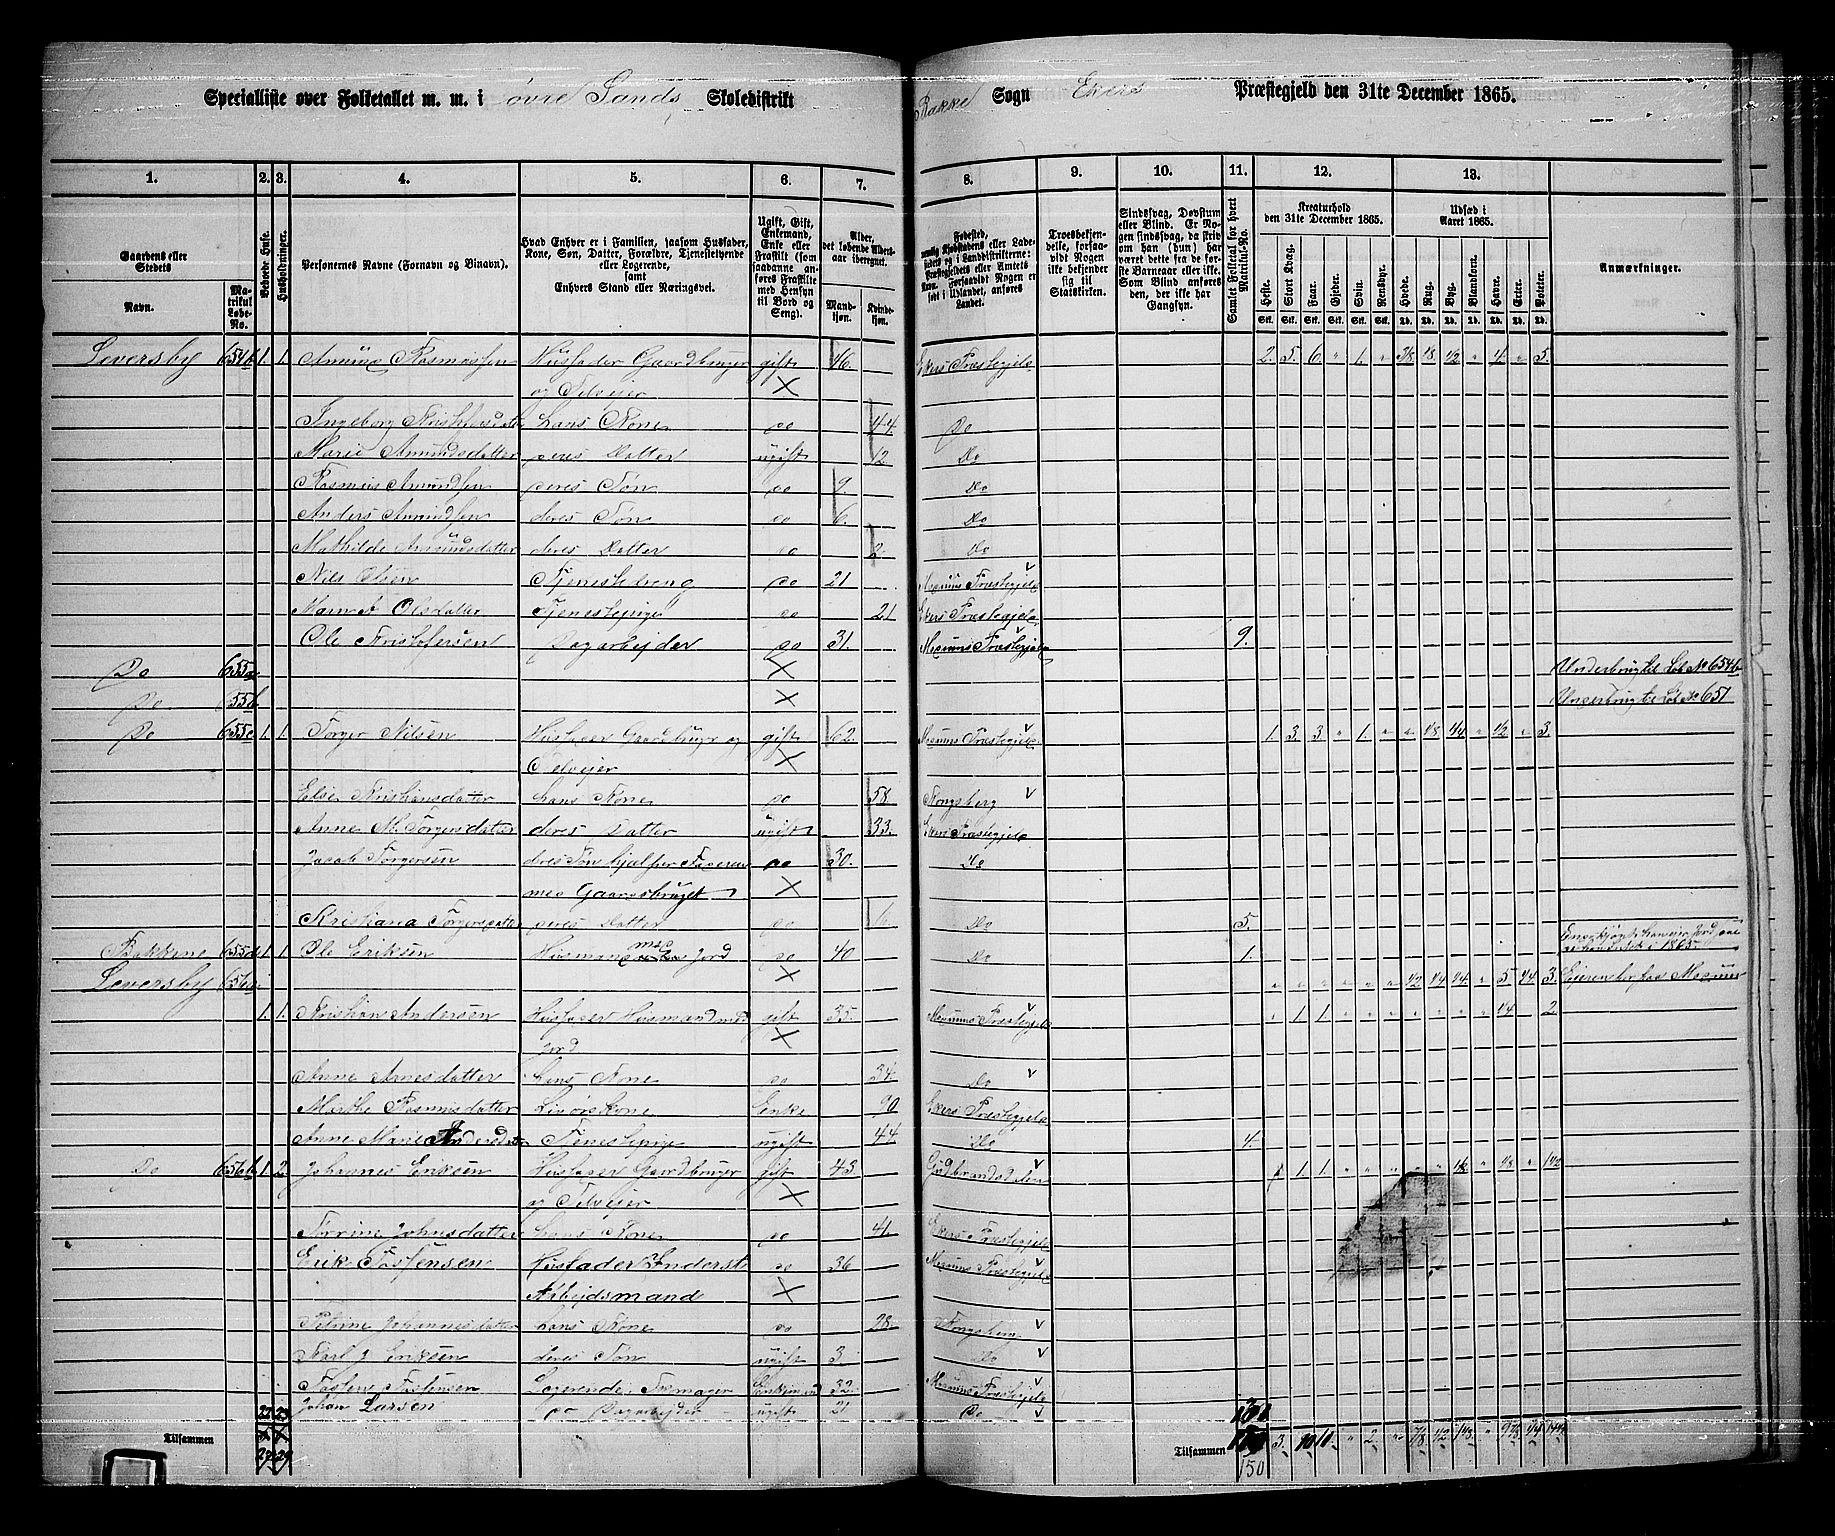 Specialliste over Folketallet m. m. i øvre Sands Skoledistrikt Bakke Sogn Ekers Præstegjeld den 31te December 1865.
1. 2. 3. 4. 5. 6. 7. 8. 9. 10. 11. 12. 13.
Gaardens eller Stedets
Navn.
Matrikul Løbe-No.
Beboede Huse.
Husholdninger.
Personernes Navne (Fornavn og Binavn).
Hvad Enhver er i Familien, saasom Husfader, Kone, Søn, Datter, Forældre, Tjenestetyende eller Logerende, samt Enhvers Stand eller Næringsvei.
Ugift, Gift, Enkemand, Enke eller Fraskilt (som saadanne anføres Fraskilte med Hensyn til Bord og Seng).
Alder, det løbende Alders-aar iberegnet.
Mandkjøn. Kvindekjøn.
Fødested,
Troesbekjendelse, forsaavidt Nogen ikke bekjender sig til Statskirken.
Sindssvag, Døvstum eller Blind. Er Nogen sindssvag, da skrives om han (hun) har været dette fra de første Barneaar eller ikke. Som Blind anføres den, der ikke har Gangsyn.
Samlet Folketal for hvert Matrikul-No.
Kreaturhold den 31te December 1865.
Heste. Stort Kvæg. Faar. Gjeder. Svin. Rensdyr.
Udsæd i Aaret 1865.
Hvede. Rug. Byg. Blandkorn. Havre. Erter. Poteter.
Anmærkninger.
Leversby 654b 1. 1. Amund Rasmussen Husfader Gaardbruger gift 46. Ekers Præstegjeld 2. 5. 6. " 1. " 3/8 1/8 1/2 " 4. " 5.
og Selveier X
Ingeborg Kristiansdatter hans Kone do 44 Do
Marie Amundsdatter deres Datter ugift 12 Do
Rasmus Amundsen deres Søn do 9. Do
Anders Amundsen deres Søn do 6. Do
Mathilde Amundsdatter deres Datter do 2. Do
Nils Olsen Tjenestedreng do 21 Modums Præstegjeld
Olsdatter Tjenestepige do 21 Ekers Præstegjeld
Ole Kristofersen Dagarbejder do 31. Modums Præstegjeld 9.
Do 655a X Underbrug til Løb No 654b
Do 655b X Underbrug til Løb No 651
Do 655c 1. 1. Torger Nilsen Husfader Gaardbruger og gift 62. Modums Præstegjeld 1. 3. 3. " 1. " " 1/8 1/4 " 1/2 " 3.
Selveier X
Else Kristiansdatter hans Kone do 58 Kongsberg
Anne M. Torgersdatter deres Datter ugift 33. Ekers Præstegjeld
Jacob Torgersen deres Søn hjælper Faderen do 30. Do
med Gaardsbruget X
Kristiana Torgersdatter deres Datter do 6 Do 5.
Bakkerne 655d 1 1 Ole Eriksen Husmand med Jord do 40 Do 1.
Leversby 656a X " " " " " " " 1/2 1/4 1/4 " 5 1/4 3. Eieren bor paa Modum
1. 1. Kristian Andersen Husfader Husmand med gift 35. Modums Præstegjeld " 1 1 " " " " " " " 1/4 " 2.
Jord X
Anne Arnesdatter hans Kone do 34. Do
Marthe Rasmusdatter Enke 90 Ekers Præstegjeld
Anne Marie Andersdatter Tjenestepige ugift 44 Do 4.
Do 656b 1. 2. Johannes Eriksen Husfader Gaardbruger gift 43. Gudbrandsdalen
og Selveier X
Johnsdatter hans Kone do 41. Ekers Præstegjeld
Erik Tostensen Husfader Inderst do 36 Modums Præstegjeld
Arbeidsmand X
Petrine Johannesdatter hans Kone do 28. Kongsberg
Karl J. Eriksen deres Søn ugift 3. Do
Tostensen Logerende Skomager Enkemand 32. Modums Præstegjeld
Johan Larsen do Dagarbejder ugift 21 Do
Tilsammen
Tilsammen
150